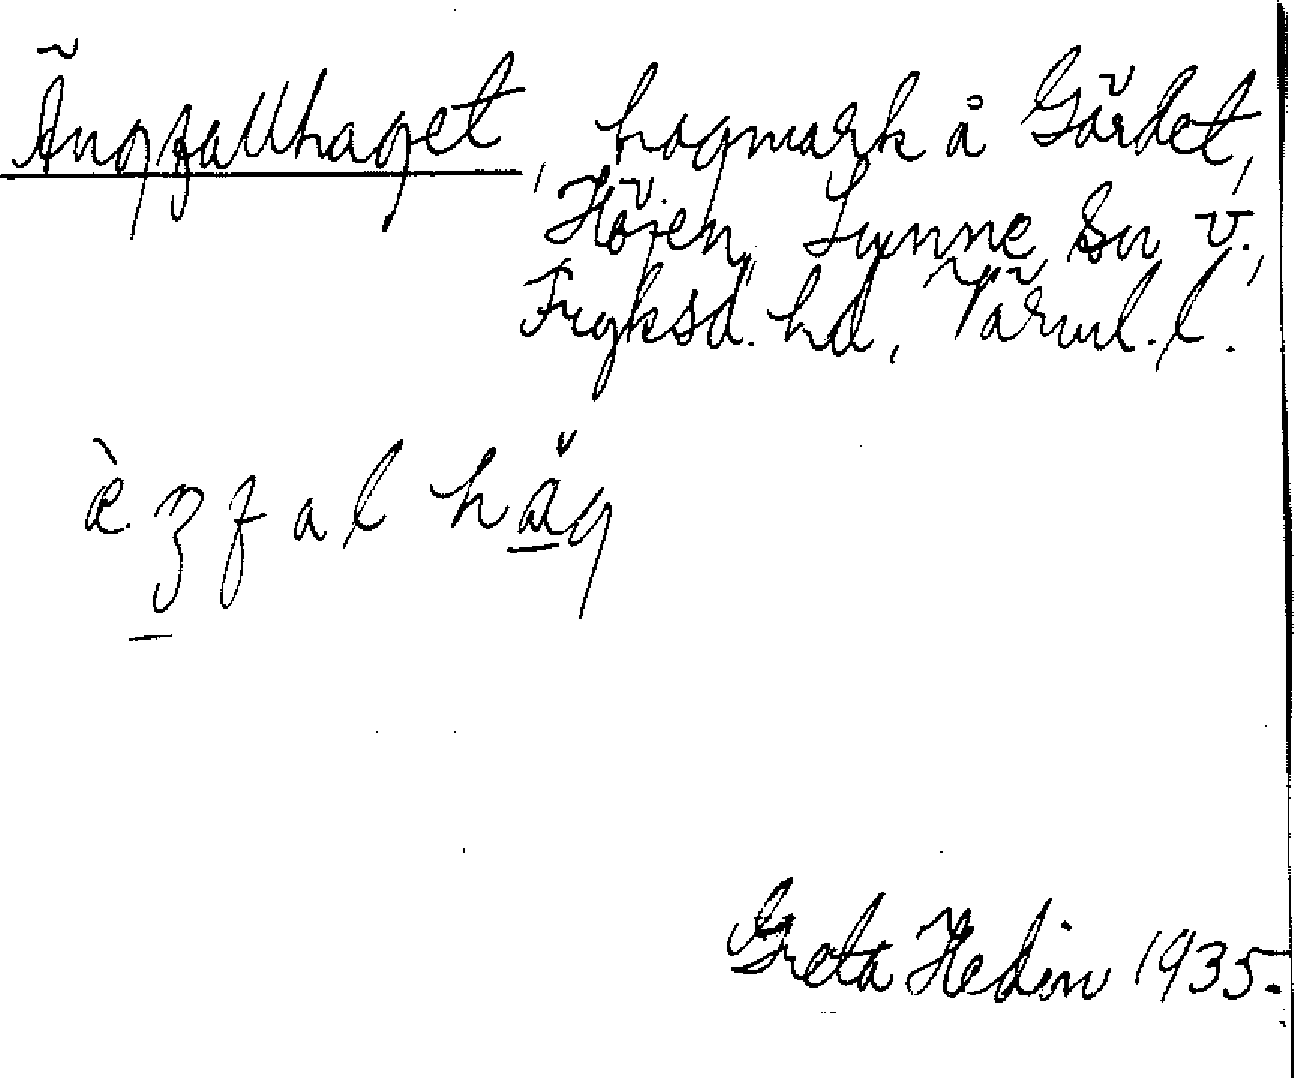 Ängfallhaget, hagmark å Gärdet,
Höjen, Sunne sn v.,
Fryksd. hd, Värml. l.
Greta Hedin 1935.